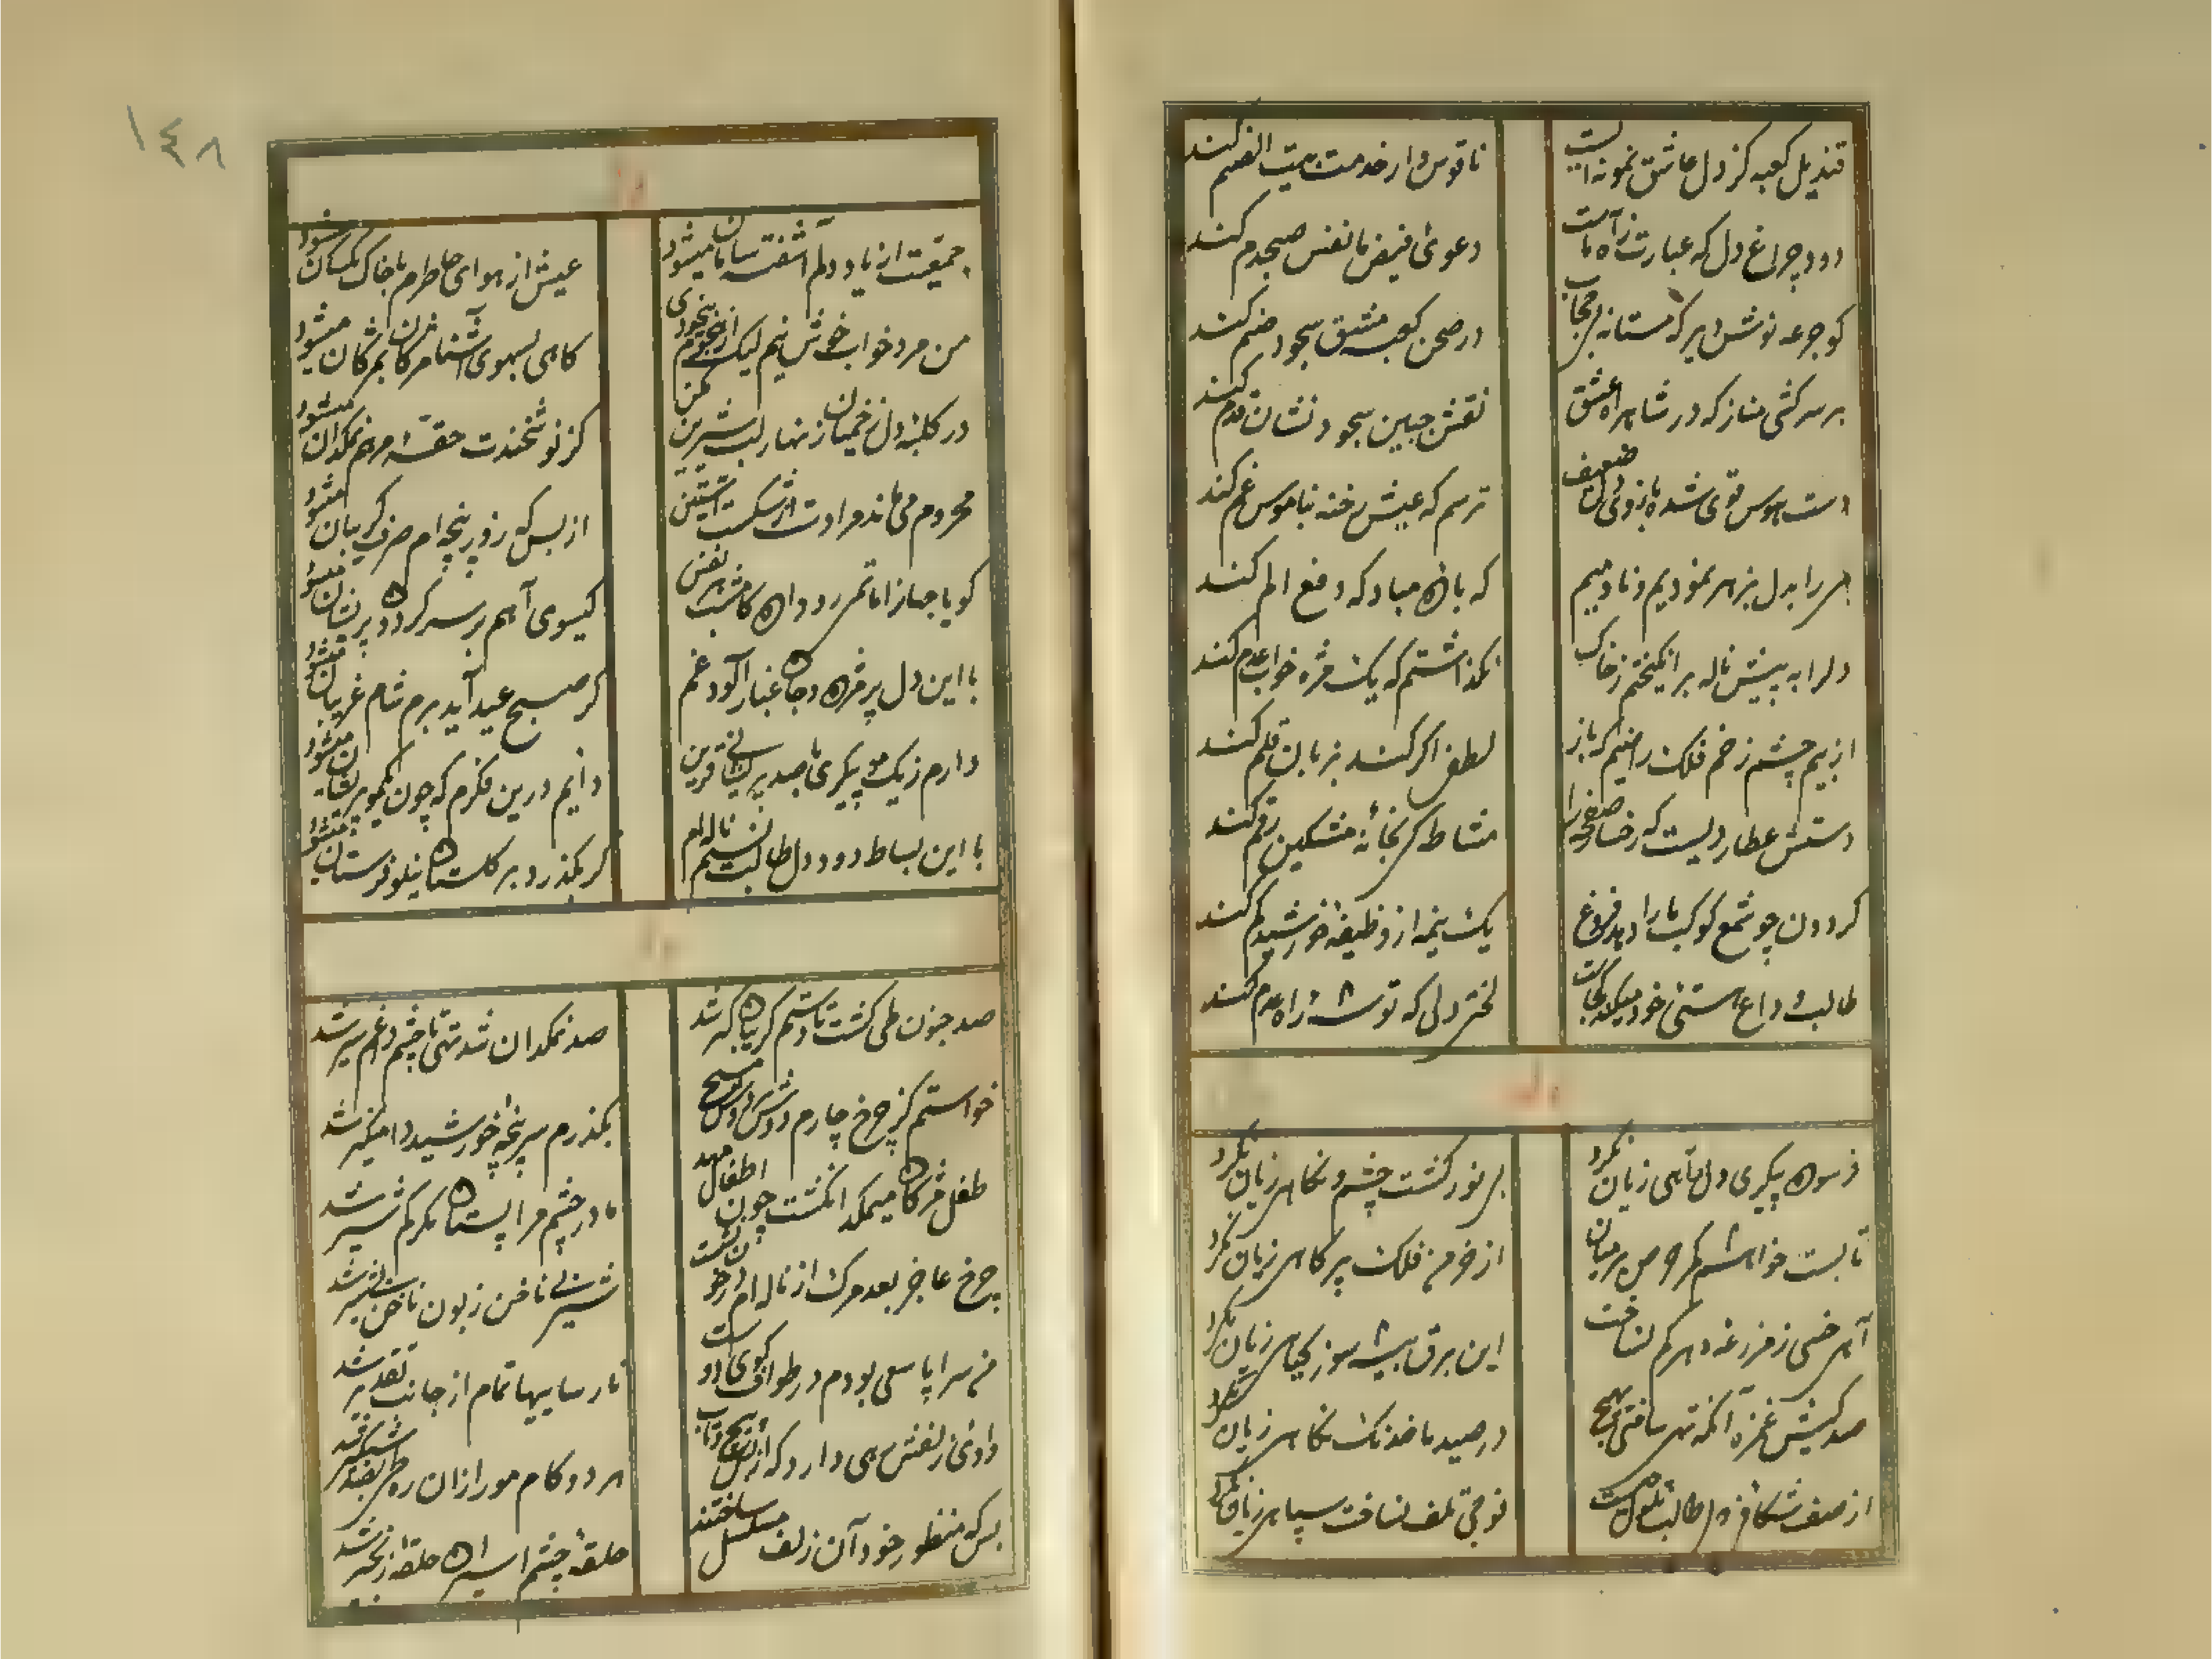 قندیل کعبه کز دل عاشق نمونه ایست
ناقوس وار خدمت بیت الصنم کند
دود چراغ دل که عبارت ز آه ماست
دعوئ فیض با نفس صبحدم کند
کو جرعه نوش دیر که مستانه بی حجاب
در صحن کعبه مشق سجود صنم کند
بر سرکشی مناز که در شاهراه عشق
نقش جبین سجود نشان قدم کند
دست هوس قوی شده بازوئ دل ضعیف
ترسم که عیش رخنه بناموس غم کند
بدل بزهر نمودیم و نادمیم
که باده مباد که دفع الم کند
دل را به پیش ناله برانگیختم ز خاک
نگذاشتم که یک مژه خواب عدم کند
از بیم چشم زخم فلک راضیم که باز
لطفی اگر کند بزبان قلم کند
دستش عطاردیست که رخسار صفحه را
مشاطه مشکین رقم کند
گردون چو شمع کوکب ما را دهد فروغ
یک نیمه از وظیفهٔ خورشید کم کند
طالب وداع هستی خود میکند کجاست
لختی دلی که توشهٔ راه عدم کند
وله
فرسوده پیکری دل ما هی زیان نکرد
بی نور گشت چشم و نگاهی زیان نکرد
تا بست خواهشم کمر حرص بر میان
از خرمن فلک پر کاهی زیان نکرد
آهی خسی ز مزرعه دهر کم نساخت
این برق بیشه سوز گیاهی زیان نکرد
صد کیش غمزه آنکه تهی ساختی بهیچ
در صید ما خدنگ نگاهی زیان نکرد
از صف شکافی دل طالب
فوجی تلف نساخت سپاهی زیان نکرد
١٤٨
وله
جمعیت از یاد دلم آشفته سامان میشود
عیش از هوای خاطرم با خاک یکسان میشود
من مرد خواب خوش نیم لیک از هجوم بیخودی
گاهی بسهوی آشنا مژگان بمژگان میشود
در کلبهٔ دل زنهار لب شیرین مکن
کز نوشخندت حقهٔ مرهم نمکدان میشود
محروم می ماند مرادت از شکست آستین
از بس که زور پنجه ام صرف گریبان میشود
گویا جهاز را ماتمی رو داده کامشب هر نفس
گیسوی آهم بر سر گردون پریشان میشود
با این دل پژمرده و جان غبار آلود غم
گر صبح عید آید برم شام غریبان میشود
دارم ز یک مو پیکری با صد پریشانی قرین
دایم درین فکرم که چون یکمو پریشان میشود
با این بساط دود دل طالب نسیم ناله ام
گر بگذرد بر گلستان نیلوفرستان میشود
وله
صد جنون طی گشت تا دستم گریبان گیر شد
صد نمکدان شد تهی تا چشم داغم سیر شد
خواستم کز چرخ چارم دوش بر دوش مسیح
بگذرم سر پنجهٔ خورشید دامنگیر شد
طفل مژگان میمکد انگشت چون اطفال مهد
مادر چشم مرا پستان مگر کم شیر شد
چرخ عاجز بعد مرگ از ناله ام
شیر بی ناخن زبون ناخن بی شیر شد
من سراپا سعی بودم در طواف کوی دوست
نارساییها تمام از جانب تقدیر شد
وادی زلفش رهی دارد که از بس پیچ و تاب
هر دو گام مور ازان ره طی بصد شبگیر شد
بسکه منظور خود آن زلف مسلسل ساختند
حلقهٔ چشم اسیران حلقهٔ زنجیر شد